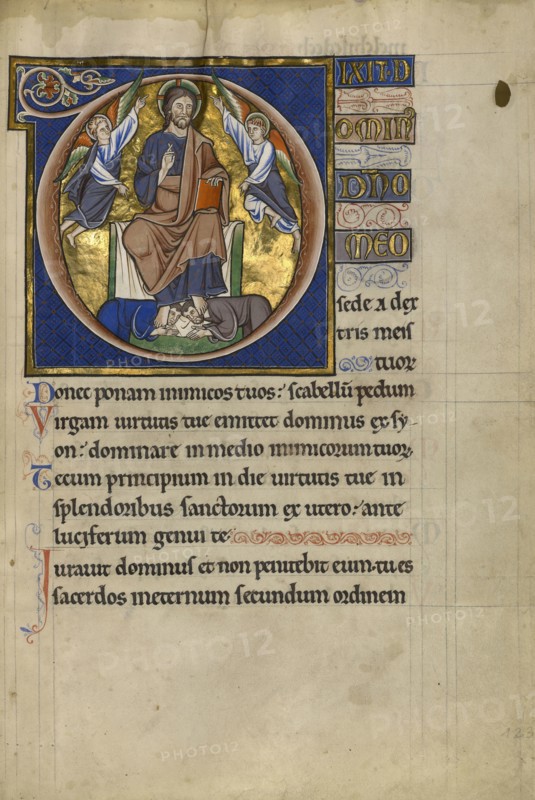 DIXIT D
OMIN
DNO
MEO
sede a dex
tris meis
tuor
Donec ponam inimicos tuos: scabellū pedum
Virgam uirtutis tue emittet dominus ex sy-
on: dominare in medio inimicorum tuor
Tecum principium in die uirtutis tue in
splendoribus sanctorum ex utero: ante
luciferum genui te.
Iurauit dominus et non penitebit eum: tu es
sacerdos ineternum secundum ordinem
PHOTO12
123